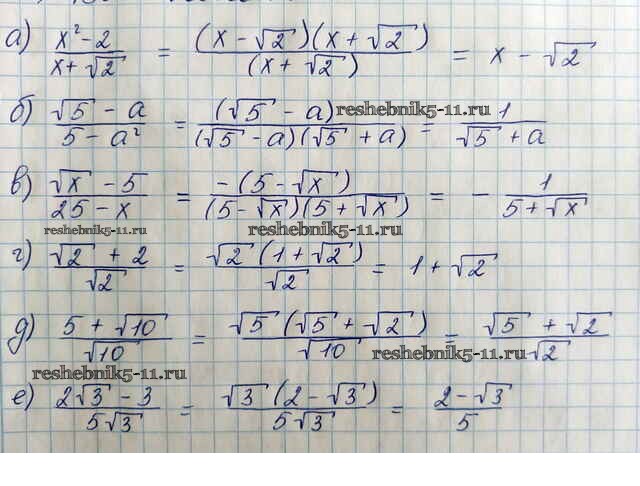 а) (x²-2)/(x+√2) = ((x-√2)(x+√2))/(x+√2) = x-√2
б) (√5-a)/(5-a²) = (√5-a)/((√5-a)(√5+a)) = 1/(√5+a)
reshebnik5-11.ru
в) (√x-5)/(25-x) = (-(5-√x))/((5-√x)(5+√x)) = -1/(5+√x)
reshebnik5-11.ru
reshebnik5-11.ru
г) (√2+2)/√2 = (√2(1+√2))/√2 = 1+√2
д) (5+√10)/√10 = (√5(√5+√2))/√10 = (√5+√2)/√2
reshebnik5-11.ru
reshebnik5-11.ru
е) (2√3-3)/(5√3) = (√3(2-√3))/(5√3) = (2-√3)/5